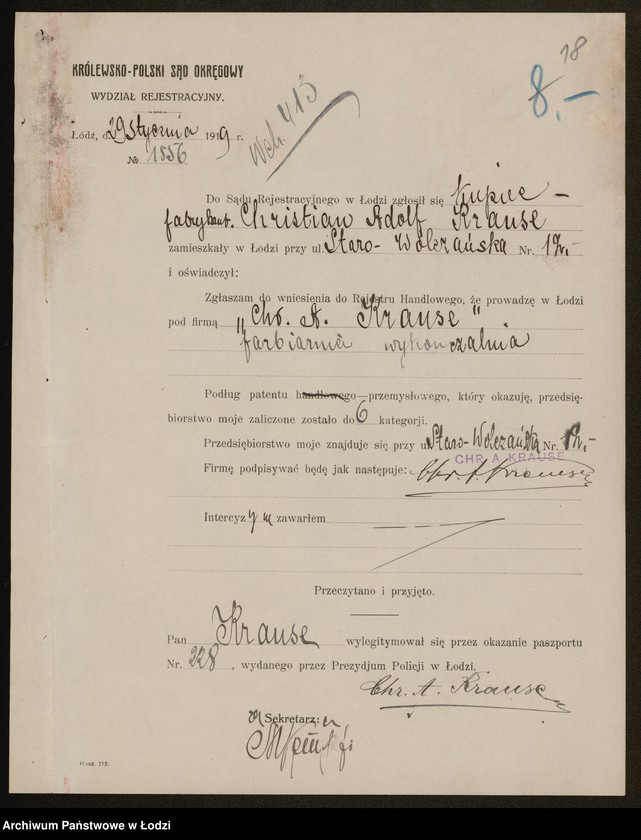 18
8,-
KRÓLEWSKO-POLSKI SĄD OKRĘGOWY
WYDZIAŁ REJESTRACYJNY.
Wch. 413
Łódź, d. 29 Stycznia 1919 r.
№ 1556
Do Sądu Rejestracyjnego w Łodzi zgłosił się kupiec -
fabrykant. Christian Adolf Krause
zamieszkały w Łodzi przy ul. Staro-Wolczańska Nr.
i oświadczył:
Zgłaszam do wniesienia do Rejestru Handlowego, że prowadzę w Łodzi
pod firmą „Chr. A. Krause"
farbiarnia wykończalnia
Podług patentu handlowego—przemysłowego, który okazuję, przedsię-
biorstwo moje zaliczone zostało do 6 kategorji.
Przedsiębiorstwo moje znajduje się przy ul. Staro-Wolczańska Nr.
CHR. A. KRAUSE
Firmę podpisywać będę jak następuje: Chr. A. Krause
Intercyzy zawarłem
Przeczytano i przyjęto.
Pan Krause wylegitymował się przez okazanie paszportu
Nr. 228, wydanego przez Prezydjum Policji w Łodzi.
Chr. A. Krause
Sekretarz:
Hand. 715.
Archiwum Państwowe w Łodzi